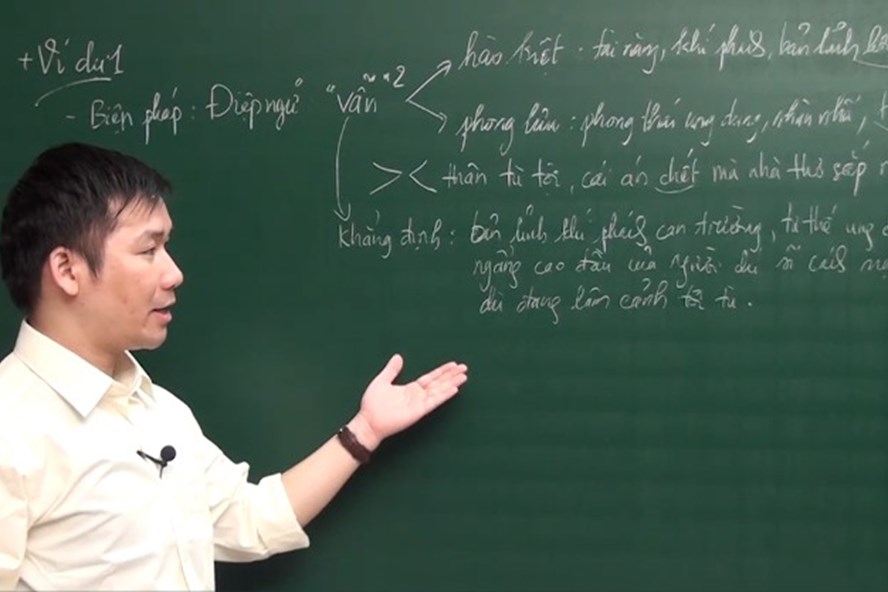 + Ví dụ 1
- Biện pháp : Điệp ngữ "vẫn" 2
hào kiệt : tài năng, khí phách, bản lĩnh
phong lưu : phong thái ung dung, nhàn nhã,
>< thân tù tội, cái án chết mà nhà thơ sắp
Khẳng định : bản lĩnh khí phách can trường, tư thế ung
ngẩng cao đầu của người chí sĩ cách
dù đang lâm cảnh tội tù.